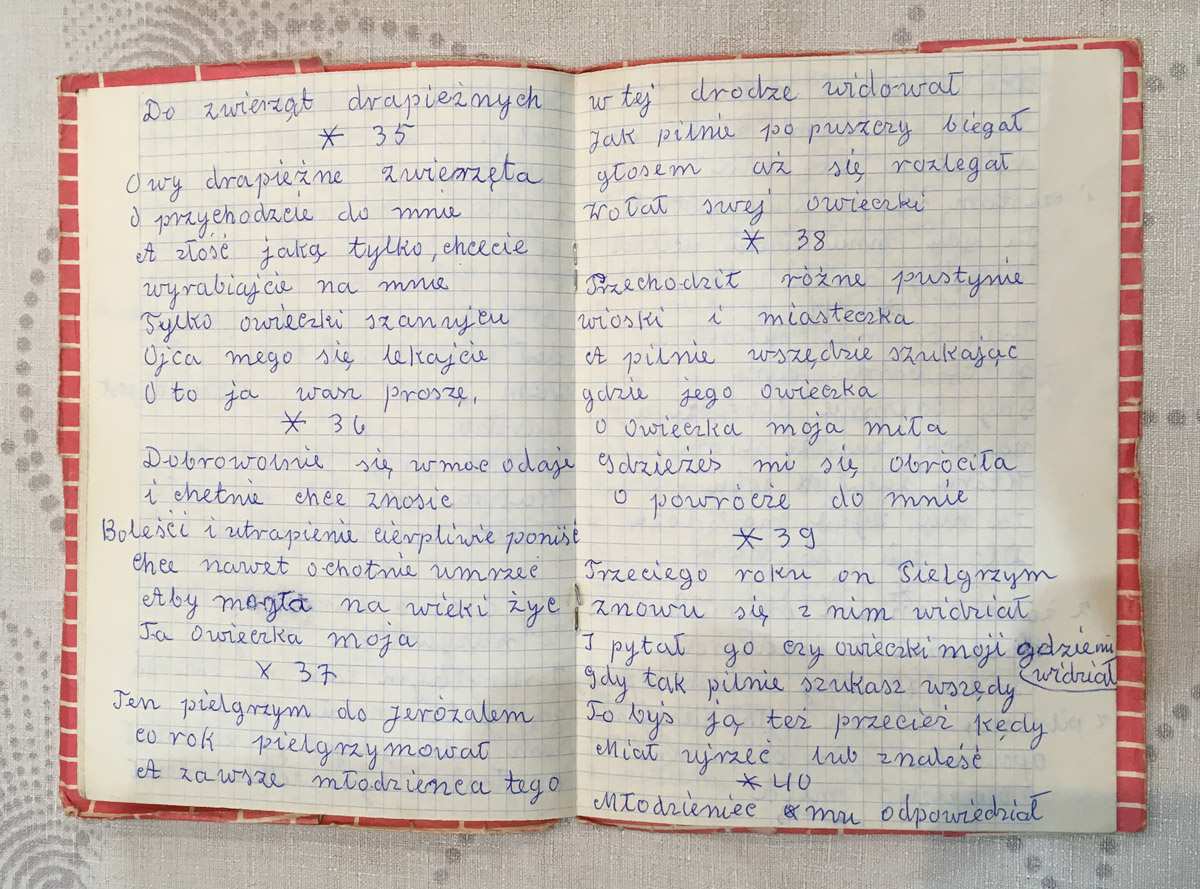 Do zwierząt drapieżnych
* 35
O wy drapieżne zwierzęta
O przychodzcie do mnie
A złość jaką tylko, chcecie
wyrabiajcie na mnie
Tylko owieczki szanujcu
Ojca mego się lekajcie
O to ja was proszę,
* 36
Dobrowolnie się wmoc odaje
i chetnie chce znosic
Boleści i utrapienie cierpliwie poniść
Chce nawet ochotnie umrzec
Aby mogła na wieki życ
Ta owieczka moja
x 37
Ten pielgrzym do Jerózalem
co rok pielgrzymował
A zawsze młodzienca tego
w tej drodze widował
Jak pilnie po puszczy biegał
głosem aż się rozlegał
Wołał swej owieczki
* 38
Przechodził różne pustynie
wioski i miasteczka
A pilnie wszędzie szukając
gdzie jego owieczka
O owieczka moja miła
Gdzieżeś mi się obróciła
O powróćże do mnie
* 39
Trzeciego roku on Pielgrzym
znowu się z nim widział
I pytał go czy owieczki moji gdzieni
widział
Gdy tak pilnie szukasz wszędy
To byś ją też przecież kędy
Miał ujrzeć lub znaleść
* 40
Młodzieniec mu odpowiedział